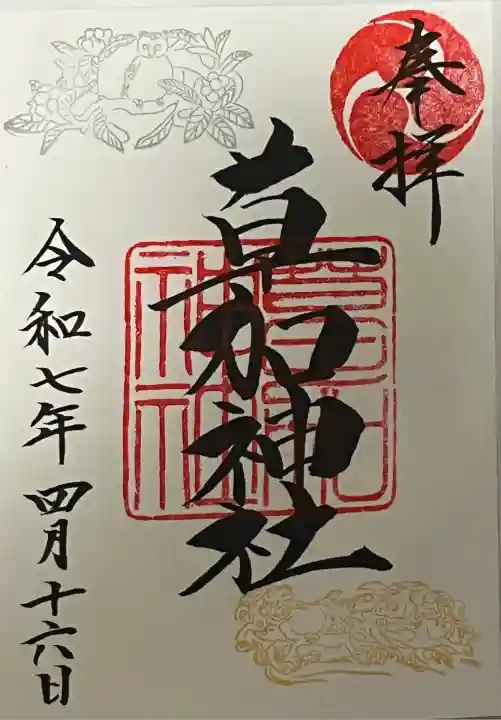 奉拝
草加神社
令和七年 四月十六日